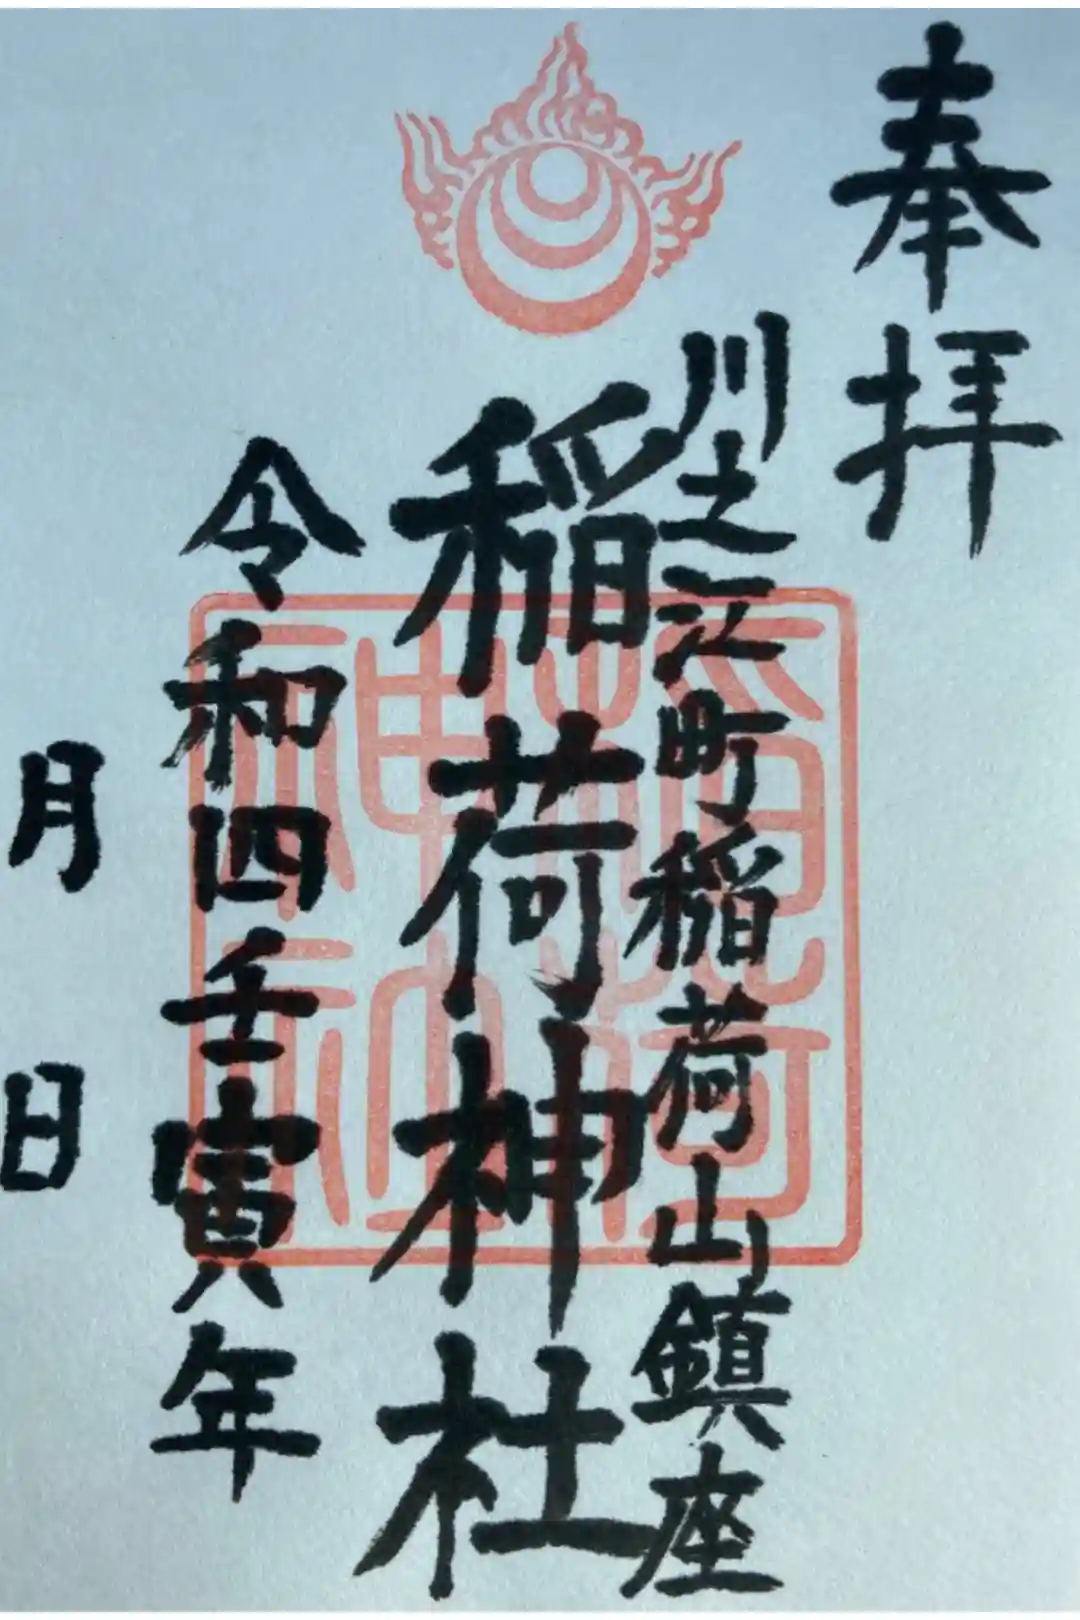 奉拝
川之江町稲荷山鎮座
稲荷神社
令和四壬寅年
月 日
稲荷
神社